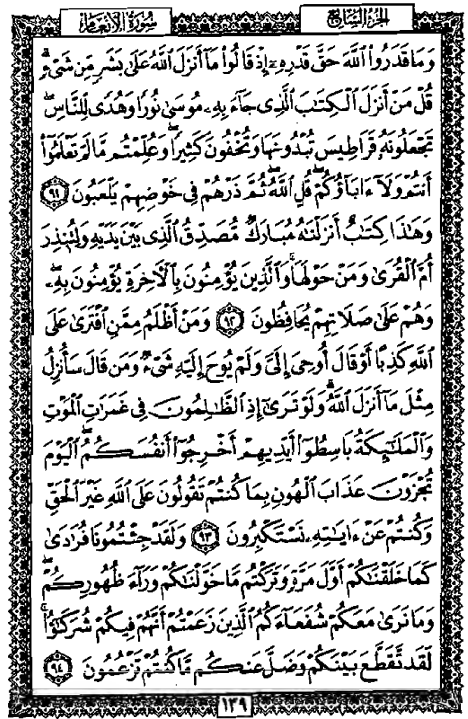 الجزء السابع
سورة الأنعام
وَمَا قَدَرُوا۟ ٱللَّهَ حَقَّ قَدْرِهِۦٓ إِذْ قَالُوا۟ مَآ أَنزَلَ ٱللَّهُ عَلَىٰ بَشَرٍ مِّن شَىْءٍ ۗ
قُلْ مَنْ أَنزَلَ ٱلْكِتَـٰبَ ٱلَّذِى جَآءَ بِهِۦ مُوسَىٰ نُورًا وَهُدًى لِّلنَّاسِ ۖ
تَجْعَلُونَهُۥ قَرَاطِيسَ تُبْدُونَهَا وَتُخْفُونَ كَثِيرًا ۖ وَعُلِّمْتُم مَّا لَمْ تَعْلَمُوٓا۟
أَنتُمْ وَلَآ ءَابَآؤُكُمْ ۖ قُلِ ٱللَّهُ ۖ ثُمَّ ذَرْهُمْ فِى خَوْضِهِمْ يَلْعَبُونَ ٩١
وَهَـٰذَا كِتَـٰبٌ أَنزَلْنَـٰهُ مُبَارَكٌ مُّصَدِّقُ ٱلَّذِى بَيْنَ يَدَيْهِ وَلِتُنذِرَ
أُمَّ ٱلْقُرَىٰ وَمَنْ حَوْلَهَا ۚ وَٱلَّذِينَ يُؤْمِنُونَ بِٱلْـَٔاخِرَةِ يُؤْمِنُونَ بِهِۦ ۖ
وَهُمْ عَلَىٰ صَلَاتِهِمْ يُحَافِظُونَ ٩٢ وَمَنْ أَظْلَمُ مِمَّنِ ٱفْتَرَىٰ عَلَى
ٱللَّهِ كَذِبًا أَوْ قَالَ أُوحِىَ إِلَىَّ وَلَمْ يُوحَ إِلَيْهِ شَىْءٌ وَمَن قَالَ سَأُنزِلُ
مِثْلَ مَآ أَنزَلَ ٱللَّهُ ۗ وَلَوْ تَرَىٰٓ إِذِ ٱلظَّـٰلِمُونَ فِى غَمَرَٰتِ ٱلْمَوْتِ
وَٱلْمَلَـٰٓئِكَةُ بَاسِطُوٓا۟ أَيْدِيهِمْ أَخْرِجُوٓا۟ أَنفُسَكُمُ ۖ ٱلْيَوْمَ
تُجْزَوْنَ عَذَابَ ٱلْهُونِ بِمَا كُنتُمْ تَقُولُونَ عَلَى ٱللَّهِ غَيْرَ ٱلْحَقِّ
وَكُنتُمْ عَنْ ءَايَـٰتِهِۦ تَسْتَكْبِرُونَ ٩٣ وَلَقَدْ جِئْتُمُونَا فُرَٰدَىٰ
كَمَا خَلَقْنَـٰكُمْ أَوَّلَ مَرَّةٍ وَتَرَكْتُم مَّا خَوَّلْنَـٰكُمْ وَرَآءَ ظُهُورِكُمْ ۖ
وَمَا نَرَىٰ مَعَكُمْ شُفَعَآءَكُمُ ٱلَّذِينَ زَعَمْتُمْ أَنَّهُمْ فِيكُمْ شُرَكَـٰٓؤُا۟ ۚ
لَقَد تَّقَطَّعَ بَيْنَكُمْ وَضَلَّ عَنكُم مَّا كُنتُمْ تَزْعُمُونَ ٩٤
١٣٩